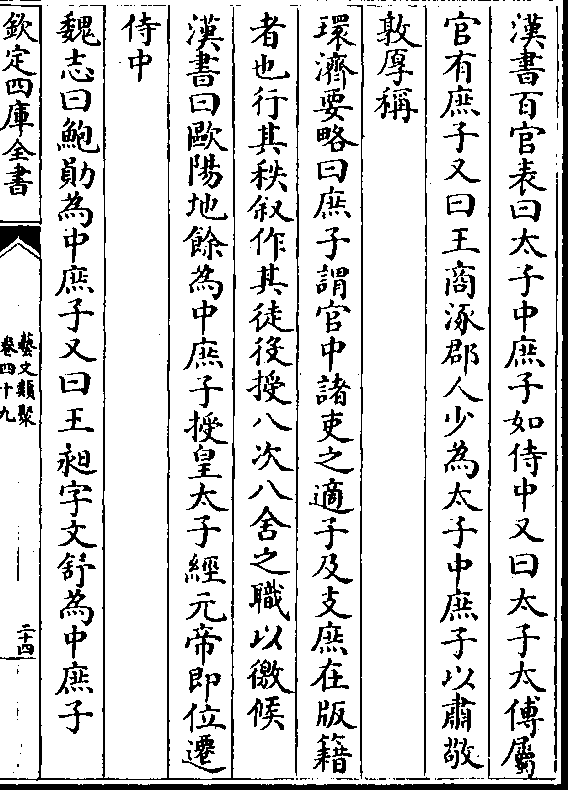 漢書百官表曰太子中庶子如侍中又曰太子太傅屬
官有庶子又曰王商涿郡人少為太子中庶子以肅敬
敦厚稱
環濟要略曰庶子謂官中諸吏之適子及支庶在版籍
者也行其秩叙作其徒役授八次八舍之職以徼候
漢書曰歐陽地餘為中庶子授皇太子經元帝即位遷
侍中
魏志曰鮑勛為中庶子又曰王昶字文舒為中庶子
欽定四庫全書
藝文類聚
卷四十九
二十四